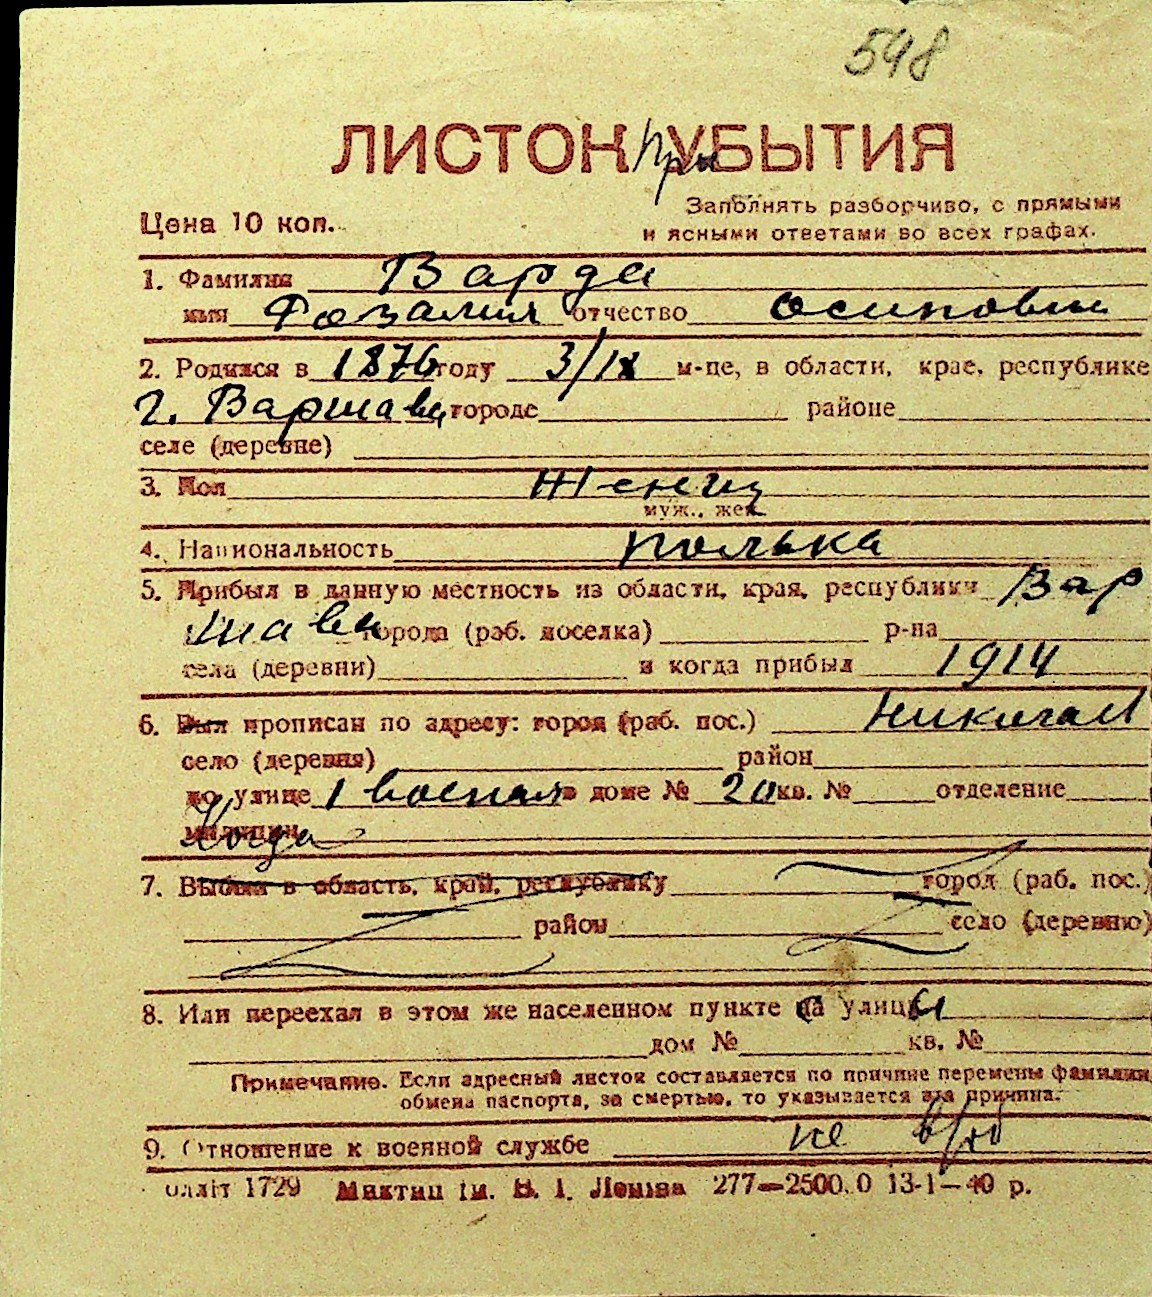 548
ЛИСТОК при УБЫТИЯ
Цена 10 коп.
Заполнять разборчиво, с прямыми
и ясными ответами во всех графах.
1. Фамилия Варда
имя Розалия отчество Осиповн
2. Родился в 1876 году 3/IX м-це, в области, крае, республике
г. Варшаве городе районе
селе (деревне)
3. Пол Женщ
муж., жен.
4. Национальность полька
5. Прибыл в данную местность из области, края, республики Вар
шавы города (раб. поселка) р-на
села (деревни) и когда прибыл 1914
6. Был прописан по адресу: город (раб. пос.) Николаев
село (деревня) район
по улице 1 военная в доме № 20 кв. № отделение
милиции Когда
7. Выбыл в область, край, республику город (раб. пос.)
район село (деревню)
8. Или переехал в этом же населенном пункте с улицы
дом № кв. №
Примечание. Если адресный листок составляется по причине перемены фамилии,
обмена паспорта, за смертью, то указывается эта причина.
9. Отношение к военной службе не в/об
олліт 1729 Миктип ім. В. І. Леніна 277—2500.0 13-1—40 р.